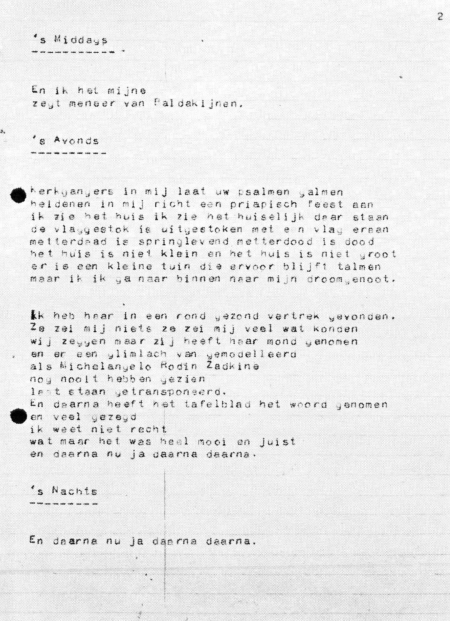 2
's Middags
En ik het mijne
zegt meneer van Baldakijnen.
's Avonds
kerkgangers in mij laat uw psalmen galmen
heidenen in mij richt een priapisch feest aan
ik zie het huis ik zie het huiselijk daar staan
de vlaggestok is uitgestoken met een vlag eraan
metterdaad is springlevend metterdood is dood
het huis is niet klein en het huis is niet groot
er is een kleine tuin die ervoor blijft talmen
maar ik ik ga naar binnen naar mijn droomgenoot.
Ik heb haar in een rond gezond vertrek gevonden.
Ze zei mij niets ze zei mij veel wat konden
wij zeggen maar zij heeft haar mond genomen
en er een glimlach van gemodelleerd
als Michelangelo Rodin Zadkine
nog nooit hebben gezien
laat staan getransponeerd.
En daarna heeft het tafelblad het woord genomen
en veel gezegd
ik weet niet recht
wat maar het was heel mooi en juist
en daarna nu ja daarna daarna.
's Nachts
En daarna nu ja daarna daarna.